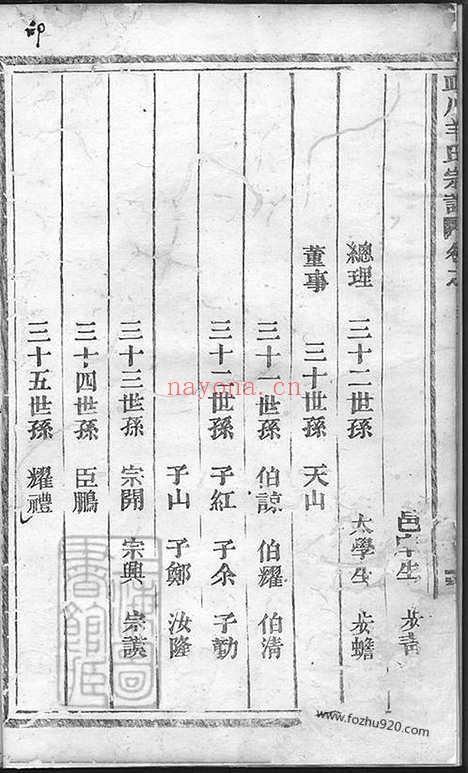 卯
氏宗譜
邑庠生
總理 三十二世孫 太學生 步蟾
董事 三十世孫 天山
三十一世孫 伯諒 伯耀 伯清
三十二世孫 子紅 子余 子勤
子山 子鄭 汝隆
三十三世孫 宗開 宗興 宗謨
三十四世孫 臣鵬
三十五世孫 耀禮
nayona.cn
www.fozhu920.com